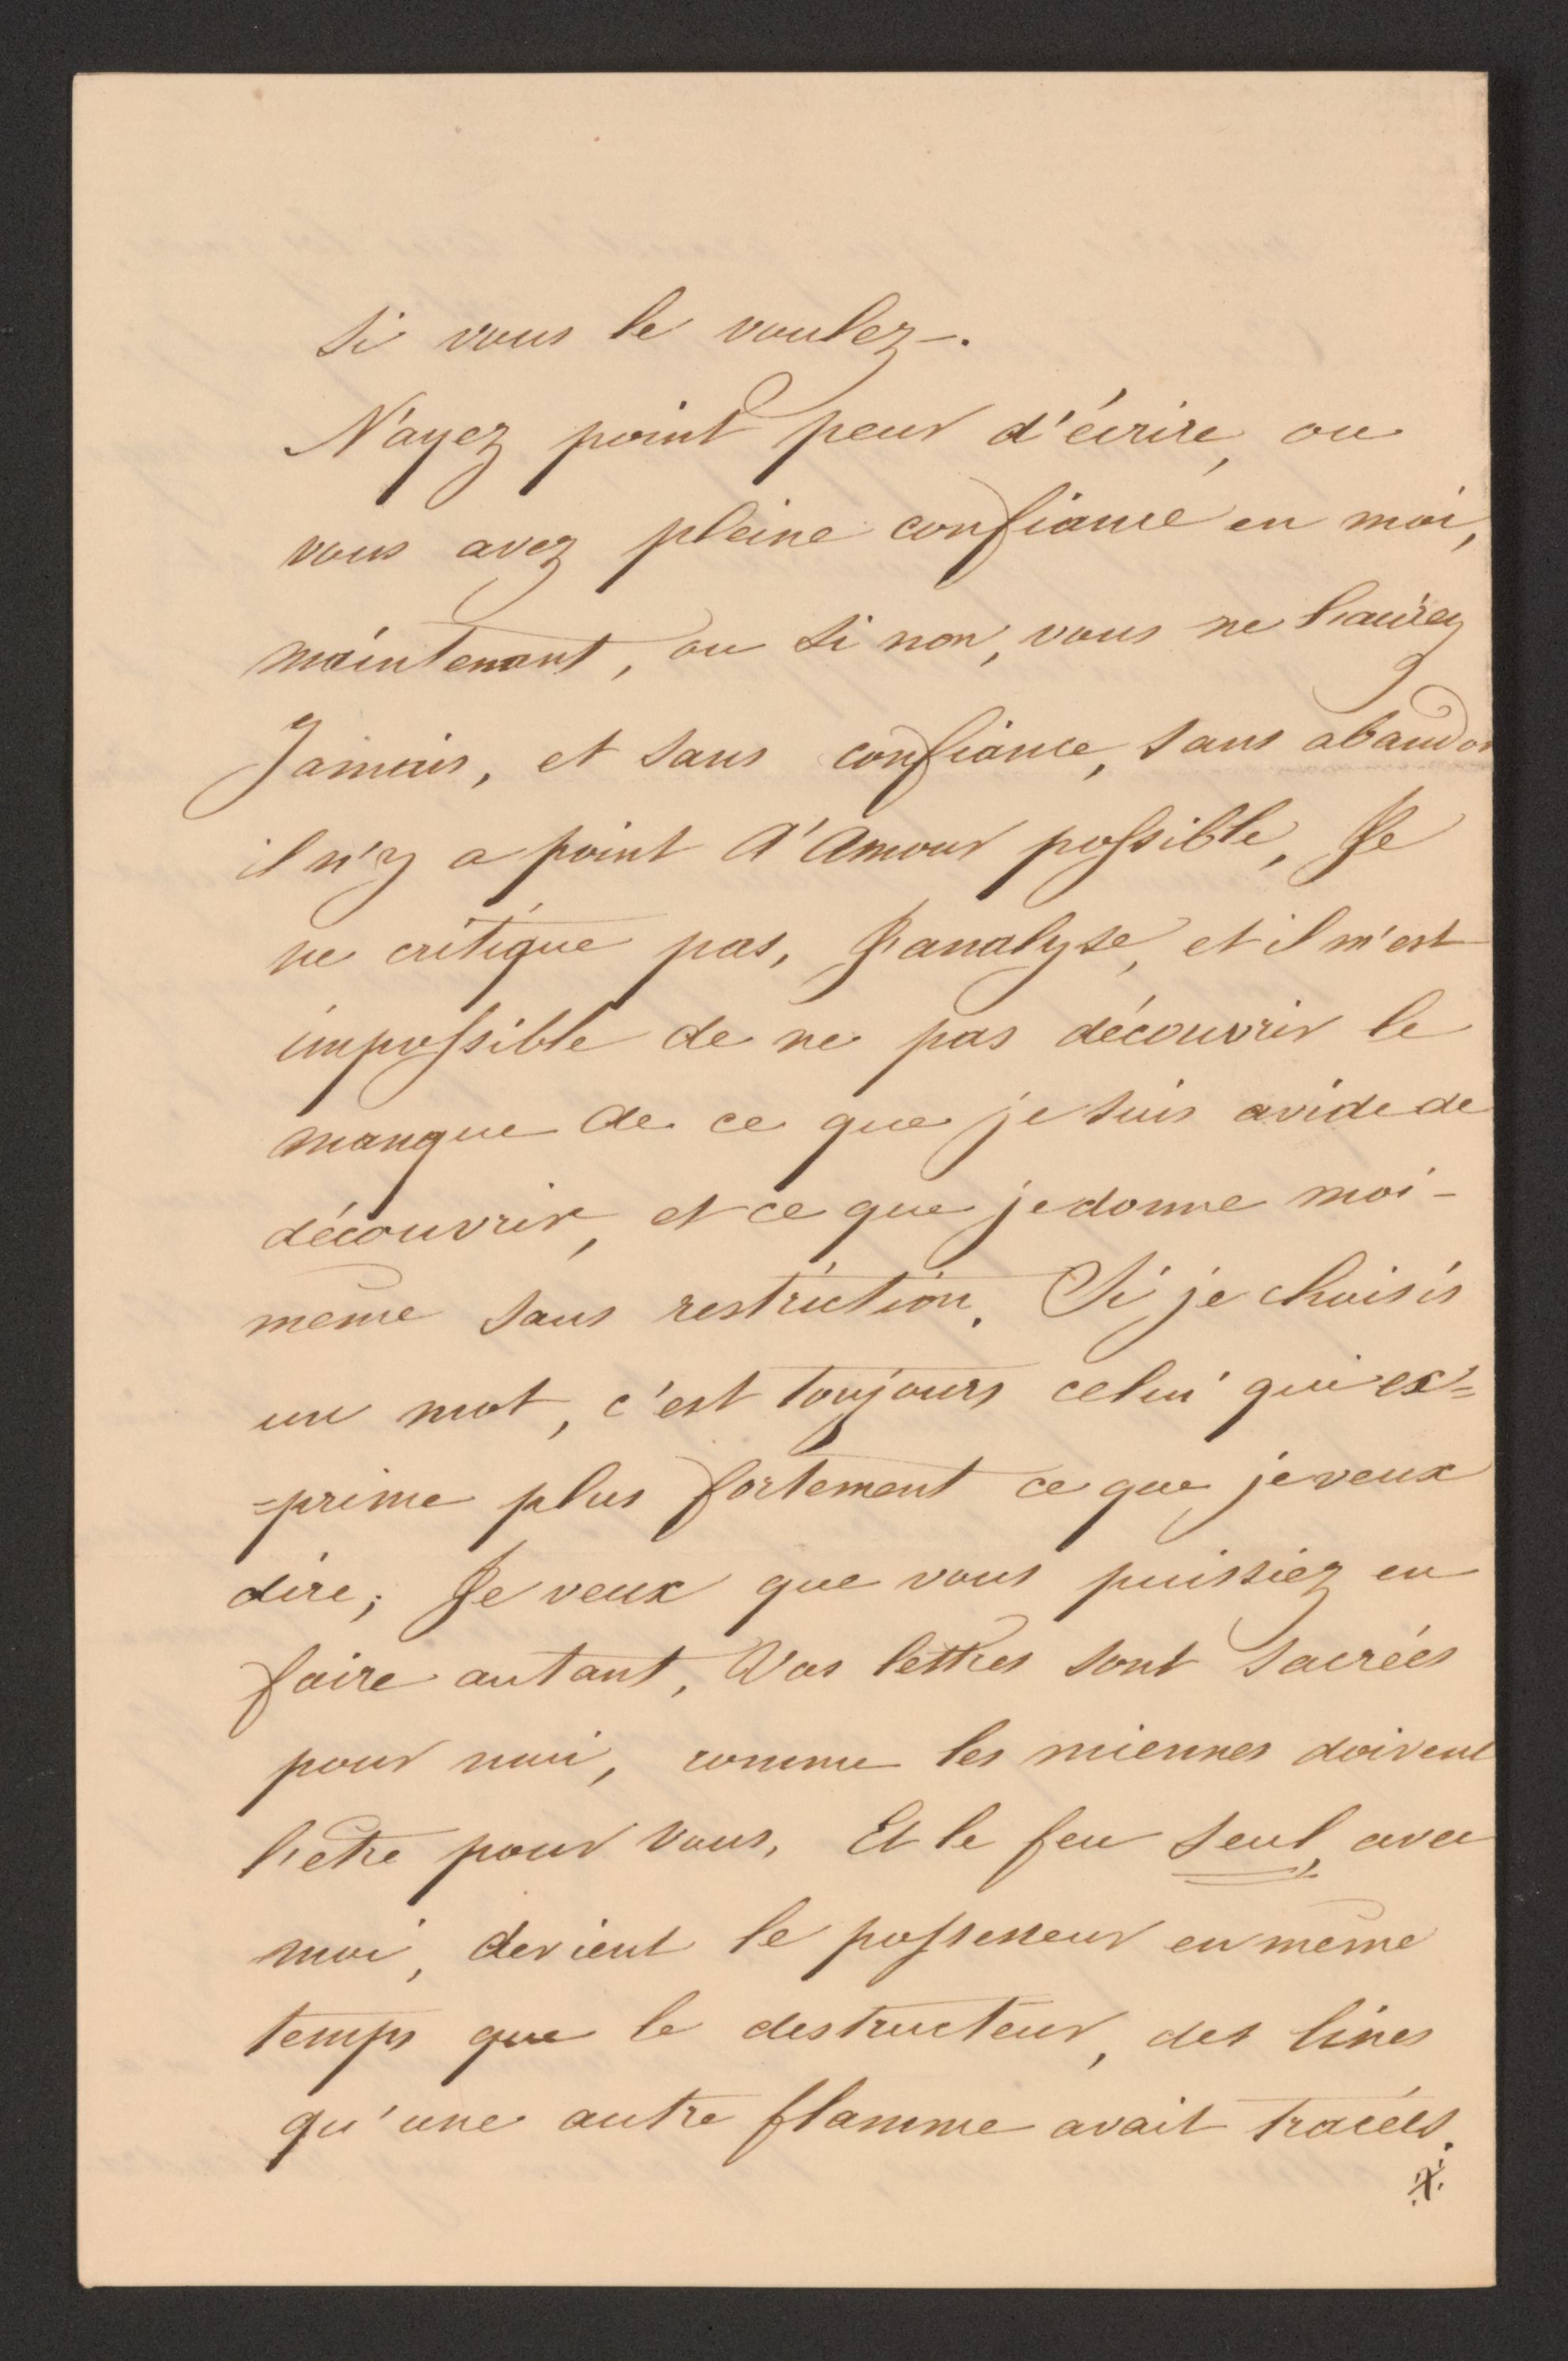 Si vous le voulez—.
N'ayez point peur d'écrire, ou
vous avez pleine confiance en moi,
maintenant, ou si non, vous ne l'aurez
Jamais, et sans confiance, sans abandon
il n'y a point d'Amour possible, Je
ne critique pas, J'analyse, et il m'est
impossible de ne pas découvrir le
manque de ce que je suis avide de
découvrir, et ce que je donne moi-
même sans restriction. Si je choisis
un mot, c'est toujours celui qui ex=
=prime plus fortement ce que je veux
dire; Je veux que vous puissiez en
faire autant, Vos lettres sont sacrées
pour moi, comme les miennes doivent
l'etre pour vous. Et le feu seul, avec
moi, devient le possesseur en même
temps que le destructeur, des lines
qu'une autre flamme avait tracées.